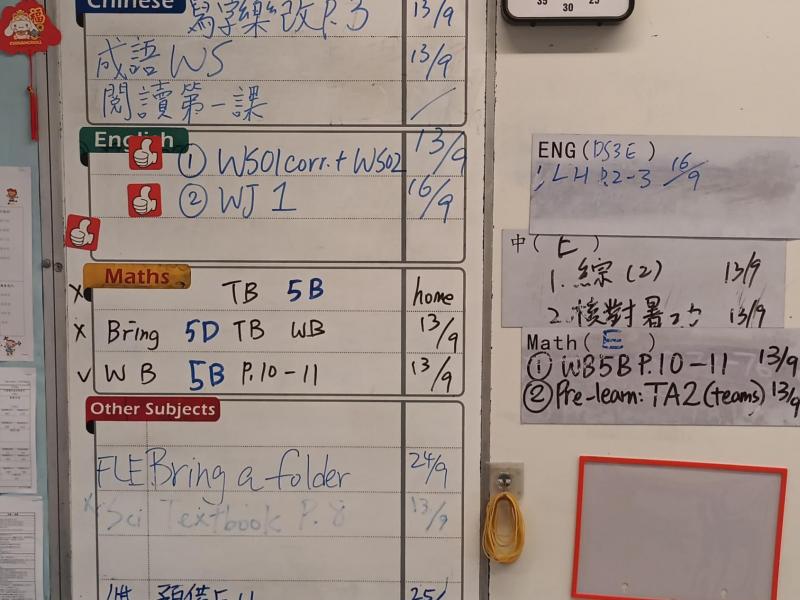 35 30 25
Chinese
寫字樂 改 P.3 13/9
成語 WS 13/9
閱讀第一課 /
English
① WS01 corr. + WS02 13/9
② WJ 1 16/9
Maths
x TB 5B home
x Bring 5D TB WB 13/9
v WB 5B P.10-11 13/9
Other Subjects
FLE Bring a folder 24/9
x Sci Textbook P. 8 13/9
25/
ENG (DS3E)
LH P.2-3 16/9
中 ( E )
1. 綜 (2) 13/9
2. 核對暑 13/9
Math ( E )
① WB5B P.10-11 13/9
② Pre-learn: TA2 (teams) 13/9